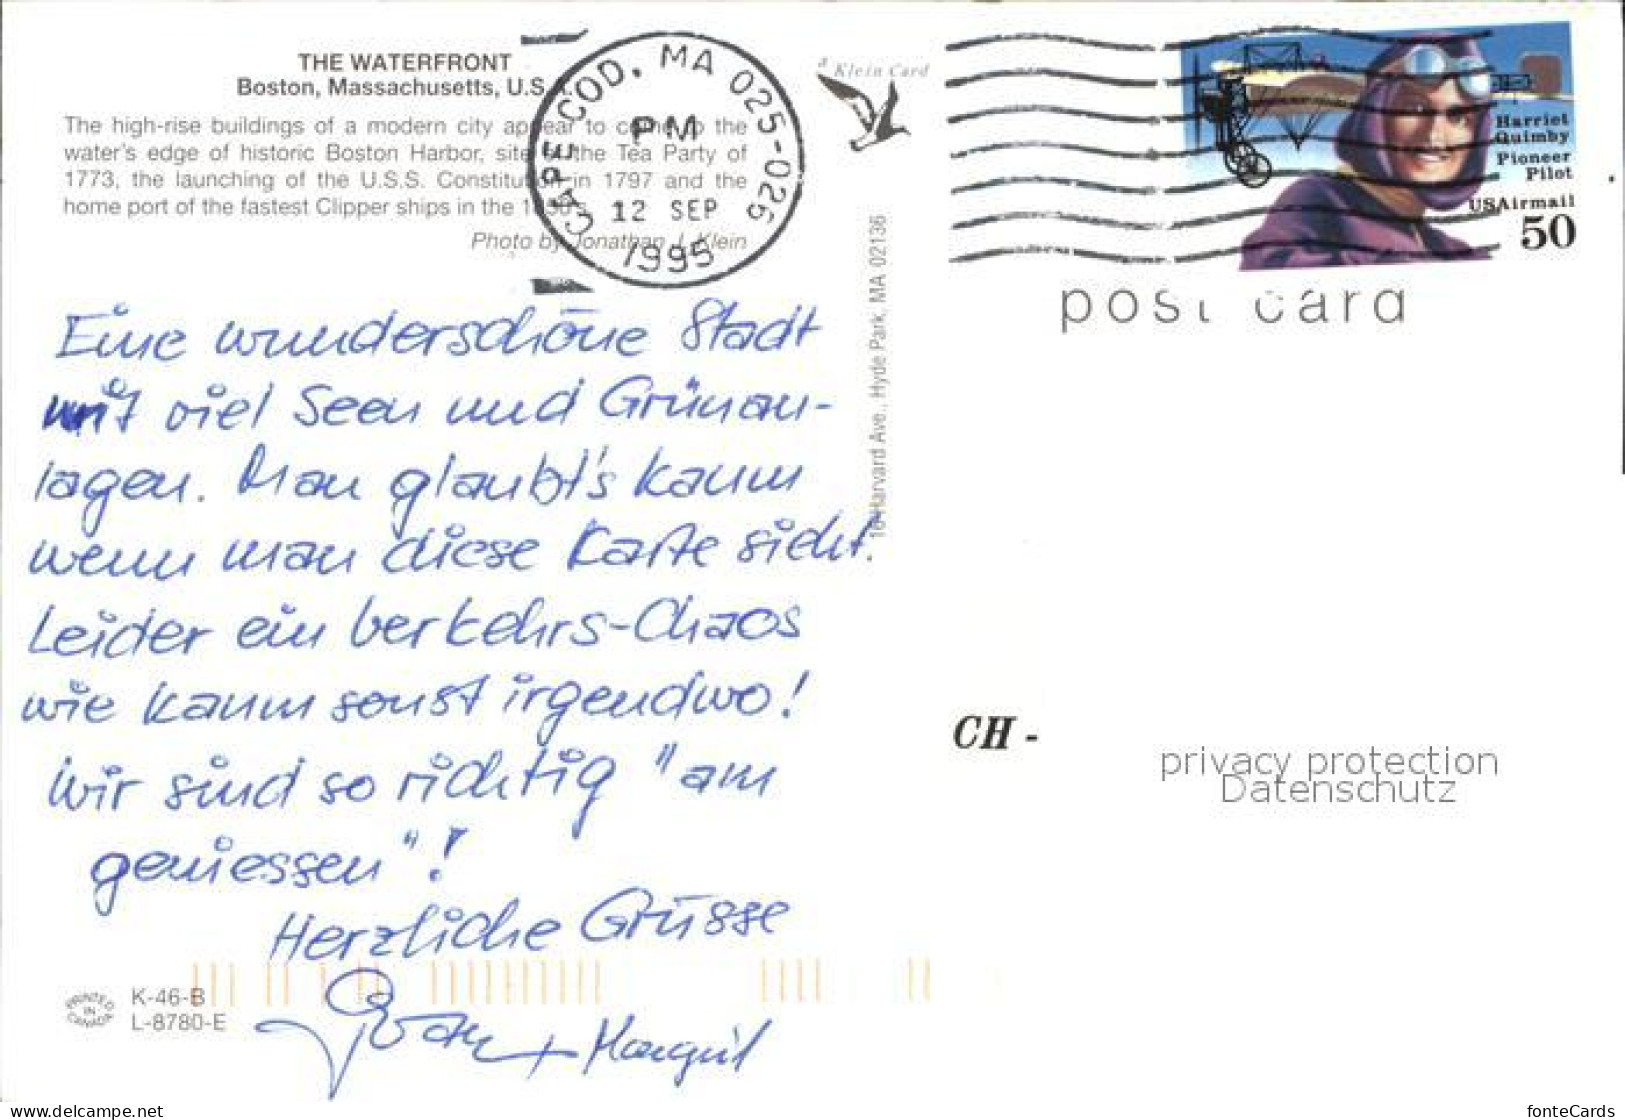 THE WATERFRONT
Boston, Massachusetts, U.S.A.
The high-rise buildings of a modern city appear to come to the
water's edge of historic Boston Harbor, site of the Tea Party of
1773, the launching of the U.S.S. Constitution in 1797 and the
home port of the fastest Clipper ships in the 1850's.
Photo by Jonathan J. Klein
CAPE COD, MA 025-026
PM
12 SEP
1995
a Klein Card
Harriet
Quimby
Pioneer
Pilot
USAirmail
50
post card
16 Harvard Ave., Hyde Park, MA 02136
Eine wunderschöne Stadt
mit viel Seen und Grünan-
lagen. Man glaubt's kaum
wenn man diese Karte sieht.
Leider ein Verkehrs-Chaos
wie kaum sonst irgendwo!
Wir sind so richtig "am
geniessen"!
Herzliche Grüsse
+ Margrit
CH -
privacy protection
Datenschutz
PRINTED
IN
CANADA
K-46-B
L-8780-E
www.delcampe.net
fonteCards